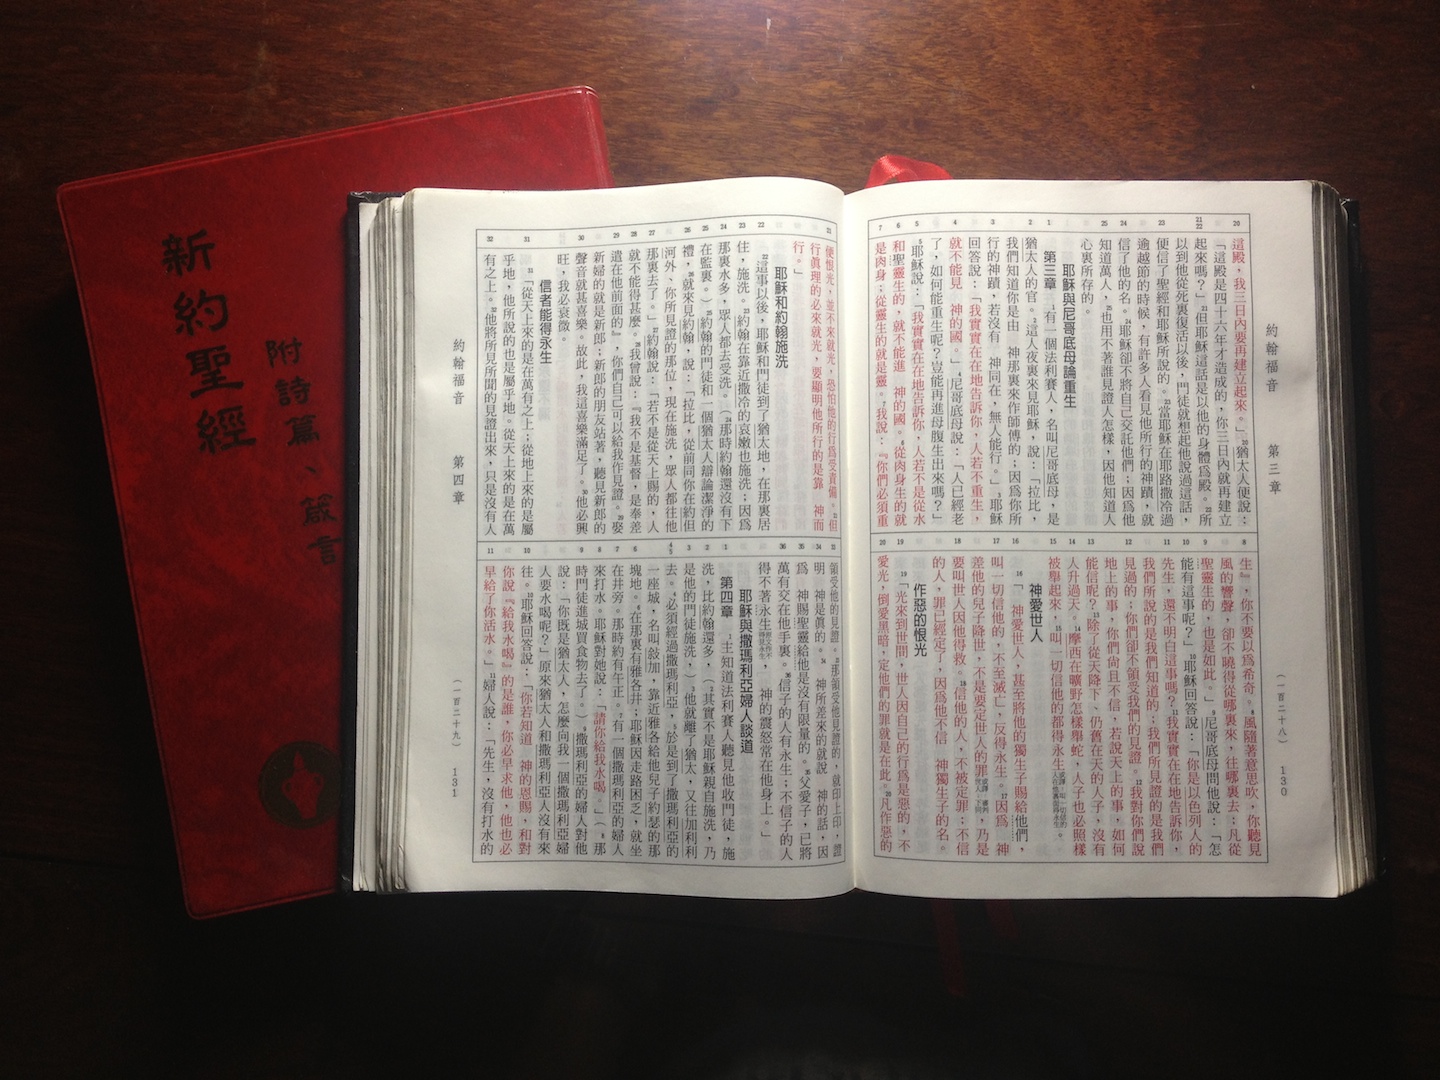 新約聖經
附詩篇、箴言
約翰福音 第三章 (一百二十八) 130
20 21 22 23 24 25 1 2 3 4 5 6 7
這殿，我三日內要再建立起來。」20猶太人便說：
「這殿是四十六年才造成的，你三日內就再建立
起來嗎？」21但耶穌這話是以他的身體爲殿。22所
以到他從死裏復活以後，門徒就想起他說過這話，
便信了聖經和耶穌所說的。23當耶穌在耶路撒冷過
逾越節的時候，有許多人看見他所行的神蹟，就
信了他的名。24耶穌卻不將自己交託他們；因爲他
知道萬人，25也用不著誰見證人怎樣，因他知道人
心裏所存的。
耶穌與尼哥底母論重生
第三章 1有一個法利賽人，名叫尼哥底母，是
猶太人的官。2這人夜裏來見耶穌，說：「拉比，
我們知道你是由 神那裏來作師傅的；因爲你所
行的神蹟，若沒有 神同在，無人能行。」3耶穌
回答說：「我實實在在地告訴你，人若不重生，
就不能見 神的國。」4尼哥底母說：「人已經老
了，如何能重生呢？豈能再進母腹生出來嗎？」
5耶穌說：「我實實在在地告訴你，人若不是從水
和聖靈生的，就不能進 神的國。6從肉身生的就
是肉身；從靈生的就是靈。7我說：『你們必須重
8 9 10 11 12 13 14 15 16 17 18 19 20
生』，你不要以爲希奇。8風隨著意思吹，你聽見
風的響聲，卻不曉得從哪裏來，往哪裏去；凡從
聖靈生的，也是如此。」9尼哥底母問他說：「怎
能有這事呢？」10耶穌回答說：「你是以色列人的
先生，還不明白這事嗎？11我實實在在地告訴你，
我們所說的是我們知道的；我們所見證的是我們
見過的；你們卻不領受我們的見證。12我對你們說
地上的事，你們尚且不信，若說天上的事，如何
能信呢？13除了從天降下、仍舊在天的人子，沒有
人升過天。14摩西在曠野怎樣舉蛇，人子也必照樣
被舉起來，15叫一切信他的都得永生。
神愛世人
16「 神愛世人，甚至將他的獨生子賜給他們，
叫一切信他的，不至滅亡，反得永生。17因爲 神
差他的兒子降世，不是要定世人的罪，乃是
要叫世人因他得救。18信他的人，不被定罪；不信
的人，罪已經定了，因爲他不信 神獨生子的名。
作惡的恨光
19「光來到世間，世人因自己的行爲是惡的，不
愛光，倒愛黑暗，定他們的罪就是在此。20凡作惡的
約翰福音 第四章 (一百二十九) 131
21 22 23 24 25 26 27 28 29 30 31 32
便恨光，並不來就光，恐怕他的行爲受責備。21但
行眞理的必來就光，要顯明他所行的是靠 神而
行。」
耶穌和約翰施洗
22這事以後，耶穌和門徒到了猶太地，在那裏居
住，施洗。23約翰在靠近撒冷的哀嫩也施洗；因爲
那裏水多，眾人都去受洗。（24那時約翰還沒有下
在監裏。）25約翰的門徒和一個猶太人辯論潔淨的
禮，26就來見約翰，說：「拉比，從前同你在約但
河外、你所見證的那位，現在施洗，眾人都往他
那裏去了。」27約翰說：「若不是從天上賜的，人
就不能得甚麼。28我曾說：『我不是基督，是奉差
遣在他前面的』，你們自己可以給我作見證。29娶
新婦的就是新郎；新郎的朋友站著，聽見新郎的
聲音就甚喜樂。故此，我這喜樂滿足了。30他必興
旺，我必衰微。
信者能得永生
31「從天上來的是在萬有之上；從地上來的是屬
乎地，他所說的也是屬乎地。從天上來的是在萬
有之上。32他將所見所聞的見證出來，只是沒有人
33 34 35 36 1 2 3 4 5 6 7 8 9 10 11
領受他的見證。33那領受他見證的，就印上印，證
明 神是眞的。34 神所差來的就說 神的話，因
爲 神賜聖靈給他是沒有限量的。35父愛子，已將
萬有交在他手裏。36信子的人有永生；不信子的人
得不著永生， 神的震怒常在他身上。」
耶穌與撒瑪利亞婦人談道
第四章 1主知道法利賽人聽見他收門徒，施
洗，比約翰還多，（2其實不是耶穌親自施洗，乃
是他的門徒施洗，）3他就離了猶太，又往加利利
去。4必須經過撒瑪利亞，5於是到了撒瑪利亞的
一座城，名叫敍加，靠近雅各給他兒子約瑟的那
塊地。6在那裏有雅各井；耶穌因走路困乏，就坐
在井旁。那時約有午正。7有一個撒瑪利亞的婦人
來打水。耶穌對她說：「請你給我水喝。」（8那
時門徒進城買食物去了。）9撒瑪利亞的婦人對他
說：「你既是猶太人，怎麼向我一個撒瑪利亞婦
人要水喝呢？」原來猶太人和撒瑪利亞人沒有來
往。10耶穌回答說：「你若知道 神的恩賜，和對
你說『給我水喝』的是誰，你必早求他，他也必
早給了你活水。」11婦人說：「先生，沒有打水的